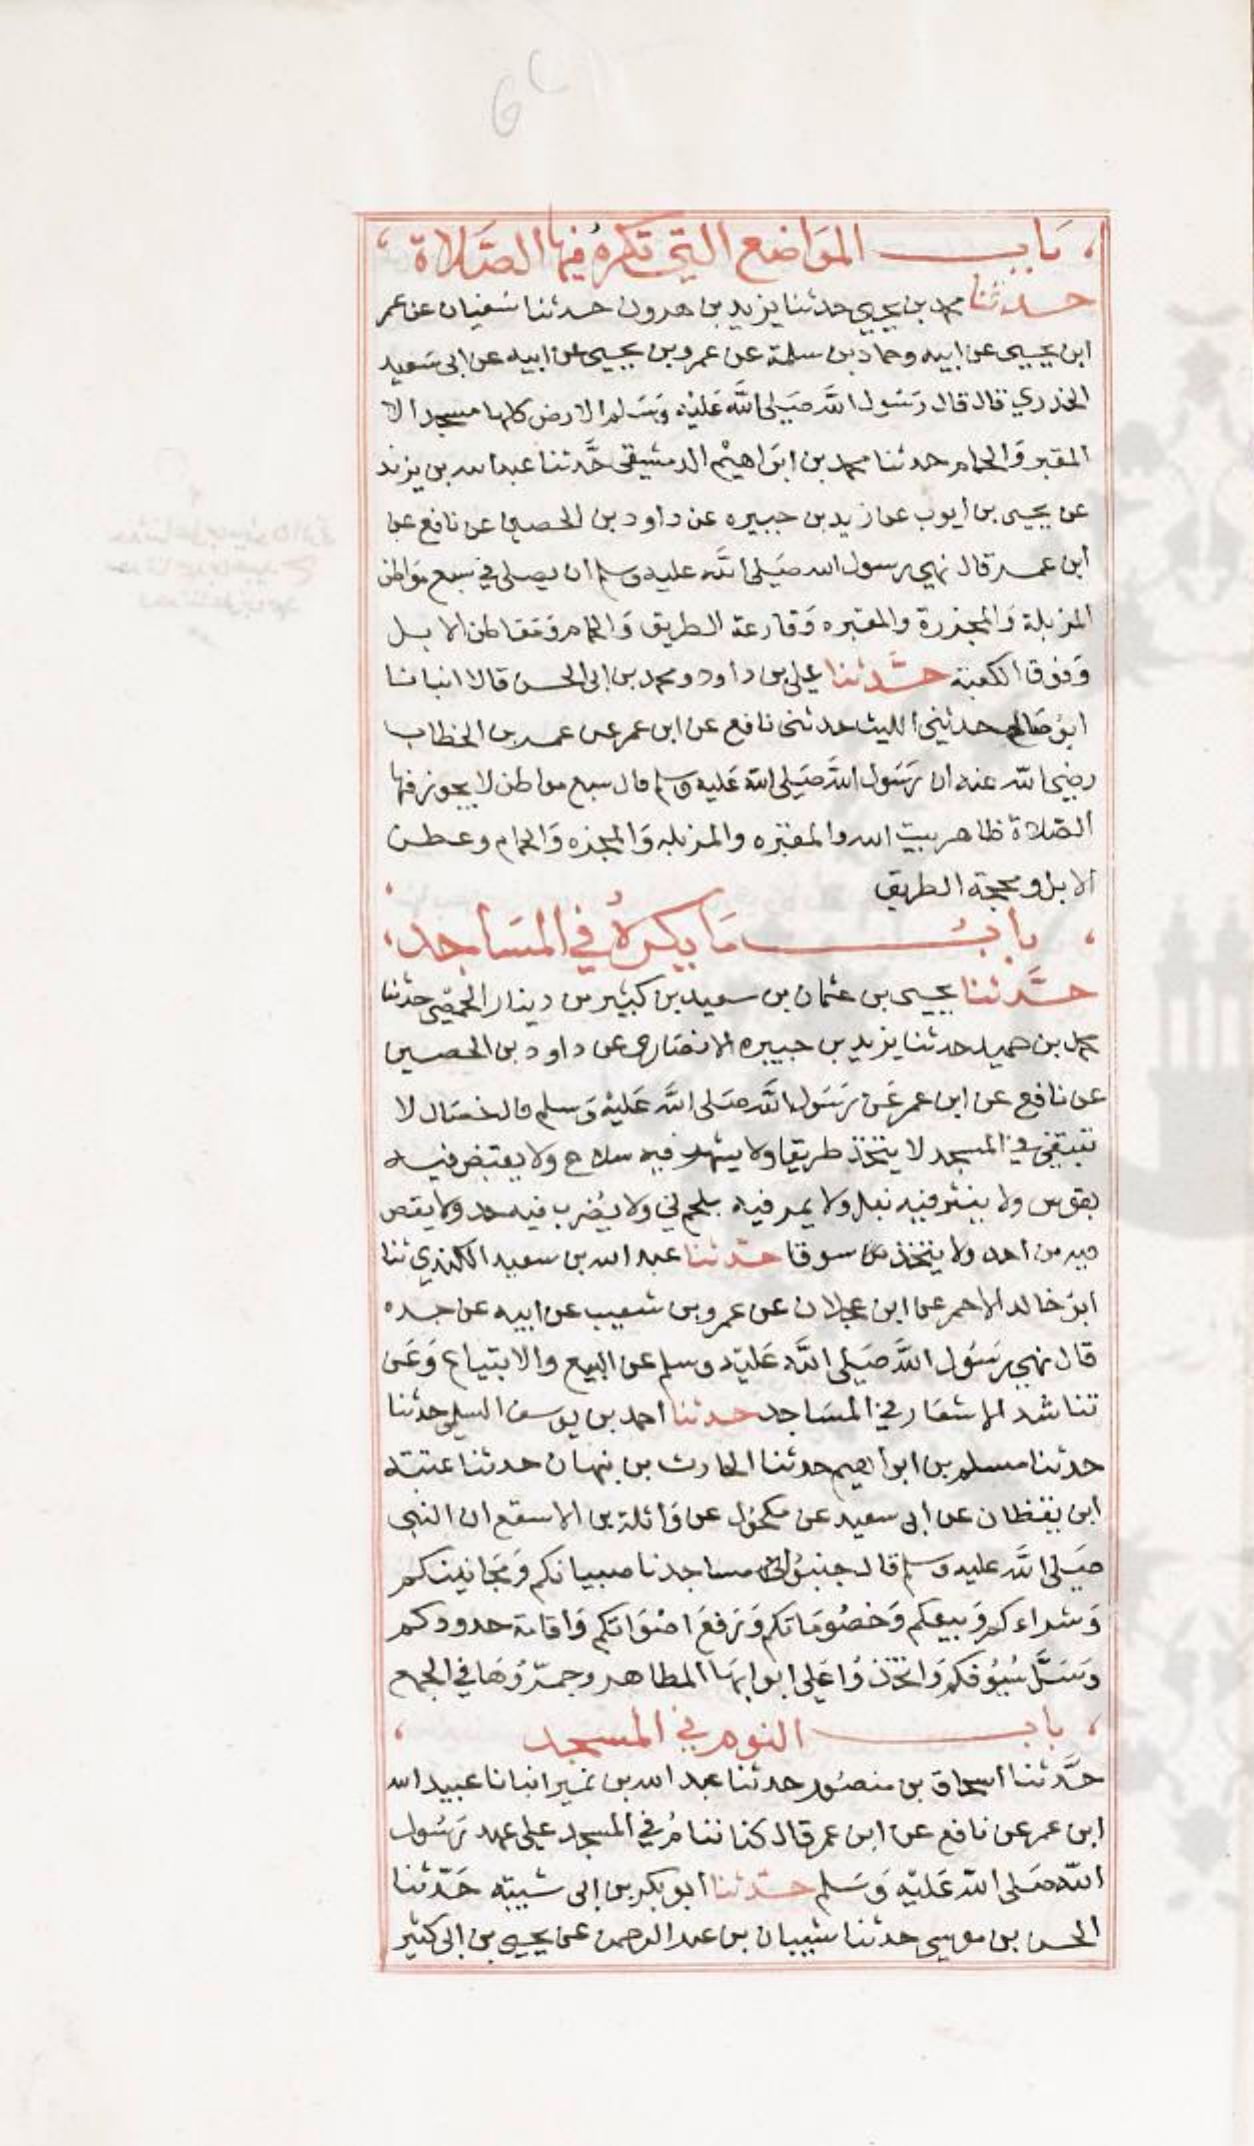 باب المَوَاضع التي تكرهُ فيها الصَّلاة
حدثنا محمد بن يحيى حدثنا يزيد بن هرون حدثنا سُفيان عن عمر
ابن يحيى عن ابيه وحماد بن سلمة عن عمرو بن يحيى عن ابيه عن ابى سَعيد
الخدري قال قال رَسُول الله صَلى اللَّه عَليْه وَسَلم الارض كلها مسجد الا
المقبر وَالحمام حدثنا محمد بن ابرَاهيْم الدمشيقى حَّدثنا عبد الله بن يزيد
عن يحيى بن ايوب عن زيد بن جبيره عن داود بن الحصين عن نافع عن
ابن عمر قال نهي رسول الله صَلى اللَّه عليه وسلم ان يصلى في سبع مَواطن
المزبلة وَالمجزرة والمقبره وَقارعة الطريق وَالحمام وَمَقاطن الابل
وَفوق الكعبَة حَّدثنا علي بن داود ومحمد بن ابى الحسن قالا انبانا
ابوُ صَالح حدثني الليث حدثنى نافع عن ابن عمر عن عمر بن الخطاب
رضي الله عنه ان رَسَول اللَّه صَلى اللَّه عَليه وسلم قال سبع مواطن لا يجوز فيها
الصَّلاة ظاهر بيت الله والمقبَره والمزبله وَالمجزه وَالحمام وعطن
الابل ومحجة الطريق
بابُ مَا يكرهُ في المسَاجد
حَّدثنا يحيى بن عثمان بن سعيد بن كبَثير بن دينار الحمصِي حدثنا
محمد بن حميد حدثنا يزيد بن جبيره الانصَارى عن داود بن الحصين
عن نافع عن ابن عمر عَن رَسَول اللَّه صَلى اللَّه عَليْه وَسلم قال خصَال لا
تبتغى في المسجد لا يتخذ طريقا ولا يشهر فيه سلاح ولا يقبَض فيه
بقوس ولا ينثر فيه نبل ولا يمر فيه بلحم ني ولا يُضرب فيه حد ولا يقص
فيه من احد ولا يتخذ سوقا حدثنا عبد الله بن سعيد الكندي ثنا
ابوُ خالد الاحمر عن ابن عجلان عن عمرو بن شعيب عن ابيه عن جده
قال نهي رَسَول اللَّه صَلى اللَّه عَليْه وسلم عن البيع والابتياع وَعَن
تناشد الاشعَار في المسَاجد حدثنا احمد بن يوسف السلمى حدثنا
حدثنا مسلم بن ابراهيم حدثنا الحارث بن نبهان حدثنا عتبة
ابن يقظان عن ابى سعيد عن مكحوُل عن وَاثلة بن الاسقع ان النبى
صَلى اللَّه عليه وسلم قال جنبوُا مساجدنا صبيانكم وَمَجَانينكم
وَشراءكم وَبيعكم وَخصُومَاتكم وَرَفعَ اصْوَاتكم وَاقامة حدودكم
وَسَلَّ سُيُوفكم وَاتخذوُا عَلى ابوابهَا المطاهر وجمّروُهَا في الجمع
باب النوم في المسجد
حَّدثنا اسحاق بن منصوُر حدثنا عبد الله بن نمير انبانا عبيد الله
ابن عمر عن نافع عن ابن عمر قال كنا ننامُ في المسجد على عهد رَسُول
اللَّه صَلى اللَّه عَليْه وَسَلم حدثنا ابو بكر بن ابى شيبه حَدّثنا
الحسن بن موسى حدثنا شيبان بن عبد الرحمن عن يحيى بن ابى كثير